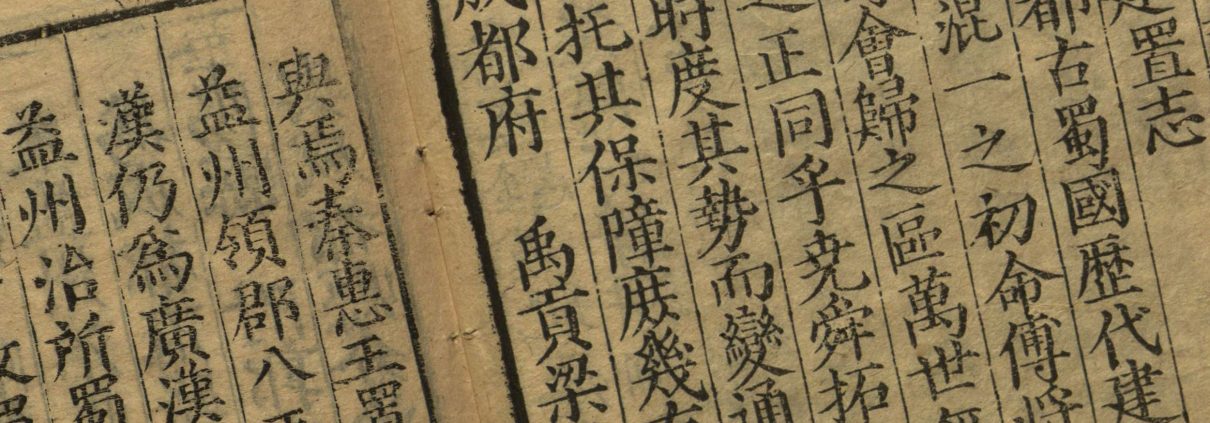 建置志
都古蜀國歷代建
混一之初命傅將
會歸之區萬世無
之正同孚堯舜拓
時度其勢而變通
托其保障庶幾
成都府 禹貢梁
與焉秦惠王置
益州領郡八
漢仍為廣漢
益州治所蜀